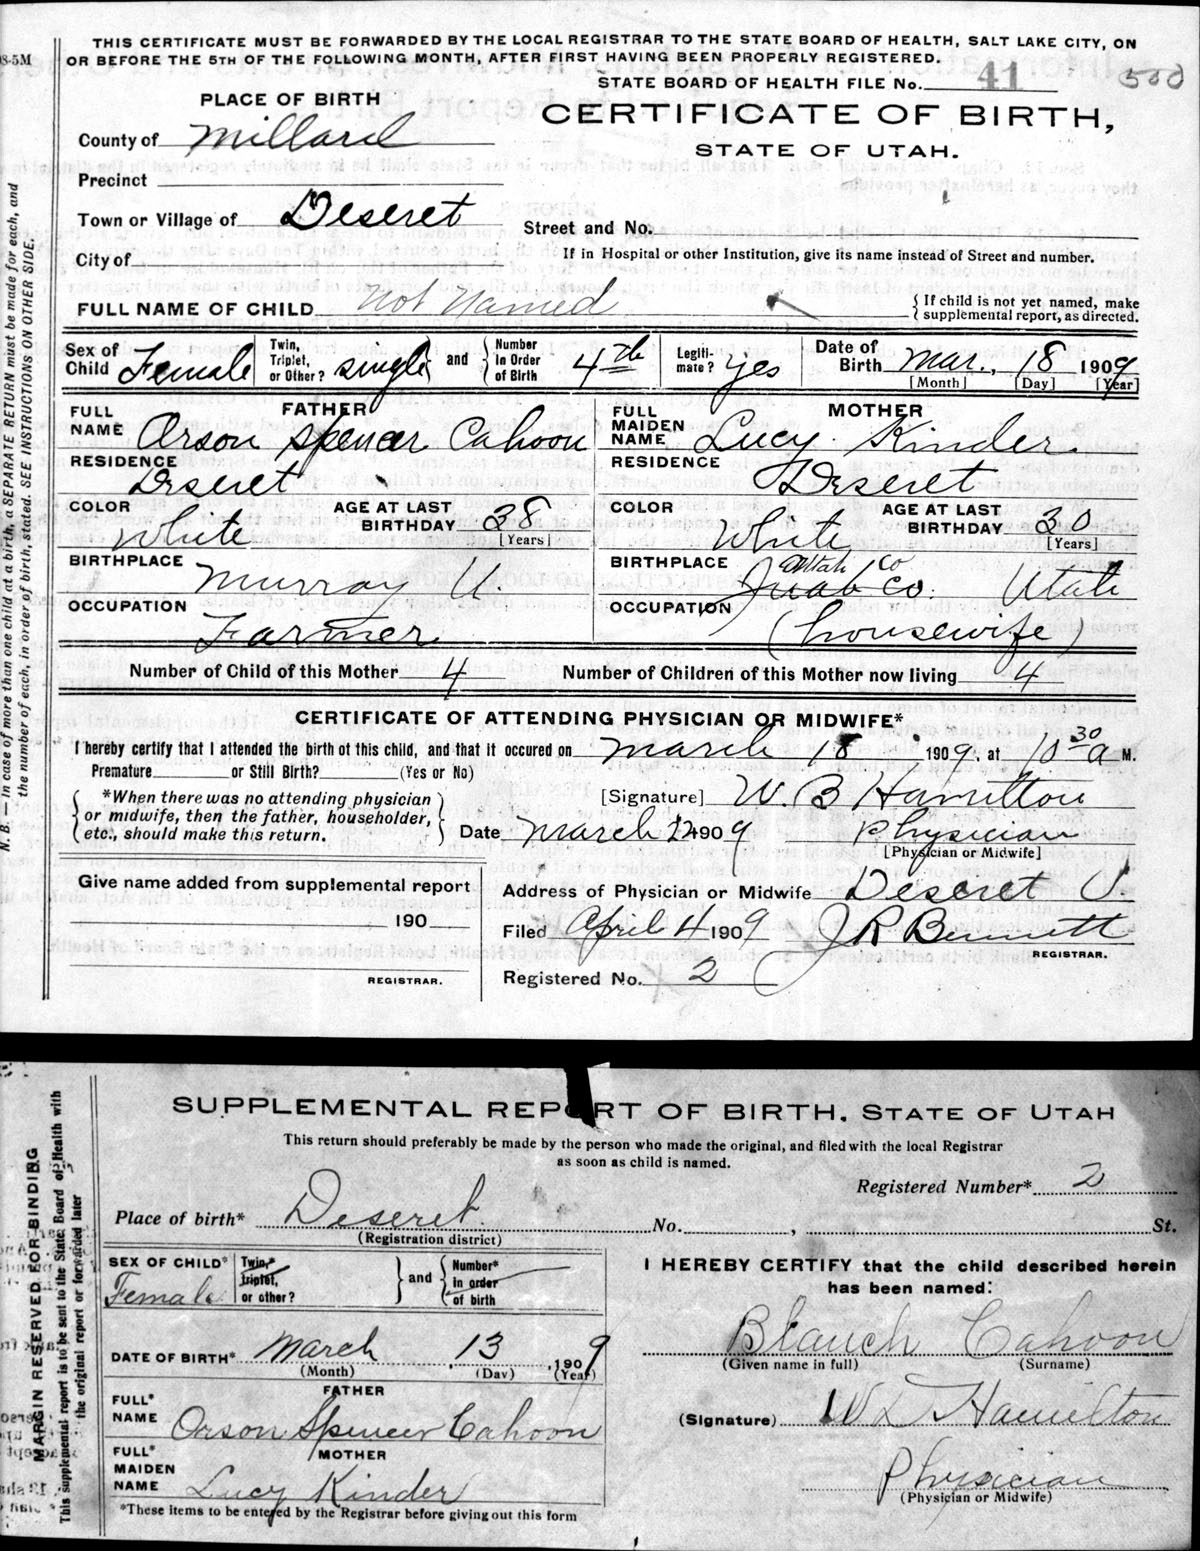 THIS CERTIFICATE MUST BE FORWARDED BY THE LOCAL REGISTRAR TO THE STATE BOARD OF HEALTH, SALT LAKE CITY, ON
OR BEFORE THE 5TH OF THE FOLLOWING MONTH, AFTER FIRST HAVING BEEN PROPERLY REGISTERED.
8-5M
STATE BOARD OF HEALTH FILE No. 41 500
PLACE OF BIRTH
CERTIFICATE OF BIRTH,
STATE OF UTAH.
County of Millard
Precinct
Town or Village of Deseret
Street and No.
City of
If in Hospital or other Institution, give its name instead of Street and number.
FULL NAME OF CHILD Not Named
{ If child is not yet named, make
supplemental report, as directed.
Sex of Child Female
Twin, Triplet, or Other? single } and { Number in Order of Birth 4th
Legitimate? yes
Date of Birth Mar. 18 1909
[Month] [Day] [Year]
FATHER
FULL NAME Orson Spencer Cahoon
RESIDENCE Deseret
COLOR White
AGE AT LAST BIRTHDAY 38
[Years]
BIRTHPLACE Murray U.
OCCUPATION Farmer
MOTHER
FULL MAIDEN NAME Lucy Kinder
RESIDENCE Deseret
COLOR White
AGE AT LAST BIRTHDAY 30
[Years]
BIRTHPLACE Utah Co Juab Co. Utah
OCCUPATION (housewife)
Number of Child of this Mother 4
Number of Children of this Mother now living 4
CERTIFICATE OF ATTENDING PHYSICIAN OR MIDWIFE*
I hereby certify that I attended the birth of this child, and that it occured on March 18 1909, at 10 30 a M.
Premature or Still Birth? (Yes or No)
{ *When there was no attending physician
or midwife, then the father, householder,
etc., should make this return. }
[Signature] W. B Hamilton
Date March 1909 Physician
[Physician or Midwife]
Give name added from supplemental report
190
REGISTRAR.
Address of Physician or Midwife Deseret U
Filed April 4 1909 J R Bennett
REGISTRAR.
Registered No. 2
N. B.—In case of more than one child at a birth, a SEPARATE RETURN must be made for each, and
the number of each, in order of birth, stated. SEE INSTRUCTIONS ON OTHER SIDE.
SUPPLEMENTAL REPORT OF BIRTH, STATE OF UTAH
This return should preferably be made by the person who made the original, and filed with the local Registrar
as soon as child is named.
Registered Number* 2
Place of birth* Deseret No. , St.
(Registration district)
SEX OF CHILD* Female
Twin,* triplet, or other? } and { Number* in order of birth
DATE OF BIRTH* March 13, 1909
(Month) (Day) (Year)
FATHER
FULL* NAME Orson Spencer Cahoon
MOTHER
FULL* MAIDEN NAME Lucy Kinder
*These items to be entered by the Registrar before giving out this form
I HEREBY CERTIFY that the child described herein
has been named:
Blanch Cahoon
(Given name in full) (Surname)
(Signature) Hamilton
Physician
(Physician or Midwife)
MARGIN RESERVED FOR BINDING
This supplemental report is to be sent to the State Board of Health with
the original report or forwarded later